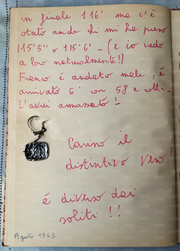 in finale 116' ma c'è
stato anche chi mi ha preso
115'5" o 115'6" - (e io credo
a loro naturalmente!)
Franco è andato male, è
arrivato 6° con 58 e otto.
L'avrei ammazzato!
Carino il
distintivo vero!
è diverso dai
soliti!!
Agosto 1963